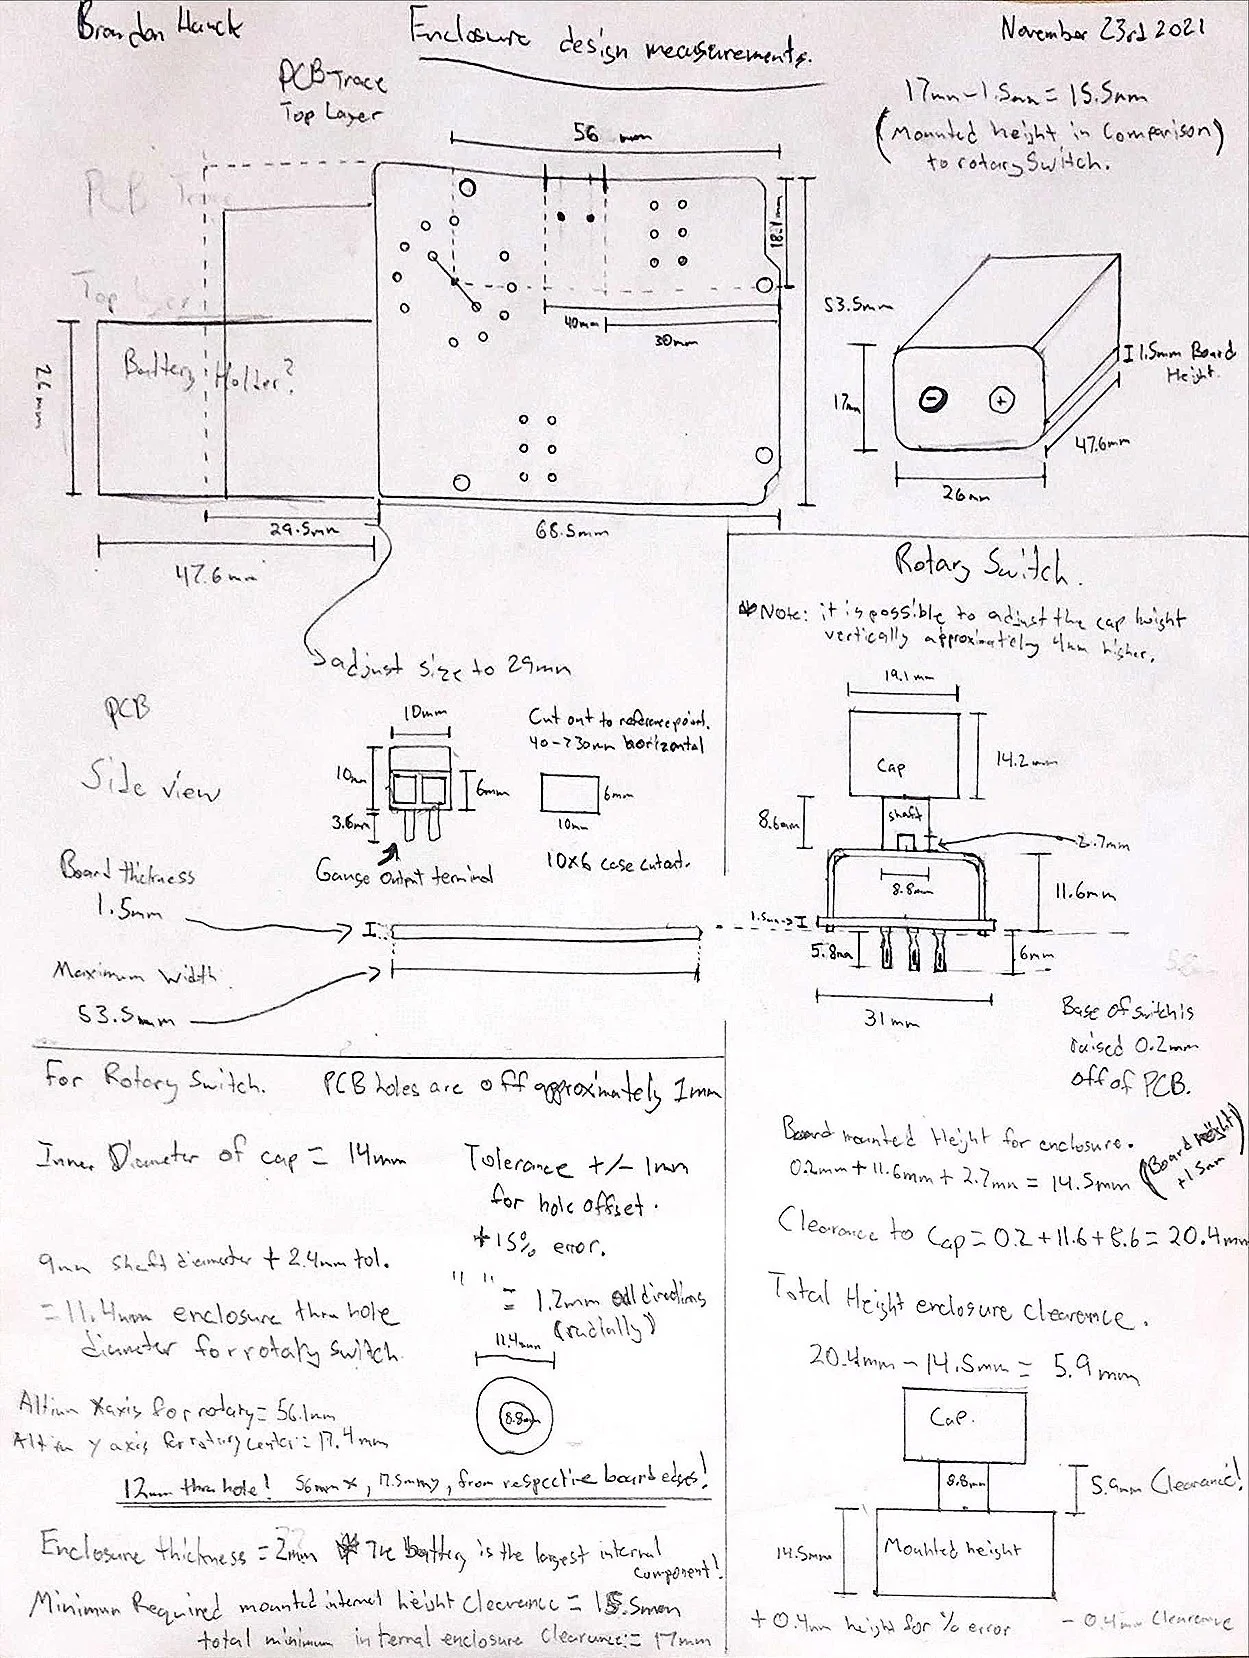 Brandon Hauck
Enclosure design measurements.
November 23rd 2021
PCB Trace
Top Layer
17mm - 1.5mm = 15.5mm
(Mounted height in comparison)
to rotary switch.
56 mm
PCB Trace
Top Layer
18.1mm
53.5mm
40mm
30mm
26mm
Battery Holder?
29.5mm
68.5mm
47.6mm
adjust size to 29mm
17mm
- +
1.5mm Board
Height.
47.6mm
26mm
Rotary Switch.
*Note: it is possible to adjust the cap height
vertically approximately 4mm higher.
19.1mm
Cap
14.2mm
8.6mm
shaft
2.7mm
8.8mm
11.6mm
1.5mm
5.8mm
6mm
31mm
Base of switch is
raised 0.2mm
off of PCB.
PCB
Side view
10mm
10mm
6mm
3.6mm
Gauge output terminal
Cut out to reference point.
40->30mm horizontal
6mm
10mm
10x6 case cutout.
Board thickness
1.5mm
Maximum Width
53.5mm
For Rotary Switch. PCB holes are off approximately 1mm
Inner Diameter of cap = 14mm
Tolerance +/- 1mm
for hole offset.
+15% error.
" " = 1.2mm all directions
(radially)
9mm shaft diameter + 2.4mm tol.
= 11.4mm enclosure thru hole
diameter for rotary switch.
11.4mm
8.8mm
Altium X axis for rotary = 56.1mm
Altium y axis for rotary center = 17.4mm
12mm thru hole! 56mm x, 17.5mm y, from respective board edges!
Enclosure thickness = 2mm * The battery is the largest internal
component!
Minimum Required mounted internal height clearance = 15.5mm
total minimum internal enclosure clearance = 17mm
Board mounted Height for enclosure.
0.2mm + 11.6mm + 2.7mm = 14.5mm (Board height)
+1.5mm
Clearance to Cap = 0.2 + 11.6 + 8.6 = 20.4mm
Total Height enclosure clearence.
20.4mm - 14.5mm = 5.9mm
Cap.
8.8mm
5.9mm Clearance!
14.5mm
Mounted height
+0.4mm height for % error
-0.4mm Clearance